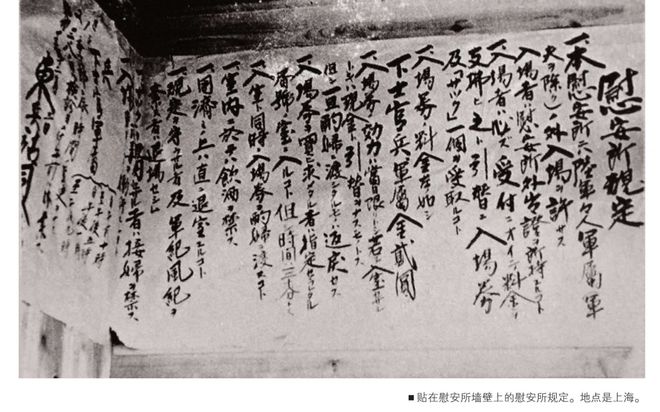 慰安所規定
一、本慰安所ニハ陸軍々人軍属(軍
夫ヲ除ク)ノ外入場ヲ許サス
入場者ハ慰安所外出證ヲ所持スルコト
一、入場者ハ必ス受付ニオイテ料金ヲ
支拂ヒ之ト引替ニ入場券
及「サック」一個ヲ受取ルコト
一、入場券ノ料金左如シ
下士官、兵、軍属金貳圓
一、入場券ノ効力ハ當日限トシ若シ入室セサル
トキハ現金ト引替ヲナスモノトス
但シ一旦酌婦ニ渡シタルモノハ返戻セス
一、入場券ヲ買ヒ求メタル者ハ指定セラレタル
番號ノ室ニ入ルコト但シ時間ハ三十分トス
一、入室ト同時ニ入場券ヲ酌婦ニ渡スコト
一、室内ニ於テハ飲酒ヲ禁ス
一、用濟ミノ上ハ直ニ退室スルコト
一、規定ヲ守ラサル者及軍紀風紀ヲ
紊ス者ハ退場セシム
一、サックヲ使用セサル者ハ接婦ヲ禁ス
■贴在慰安所墙壁上的慰安所规定。地点是上海。